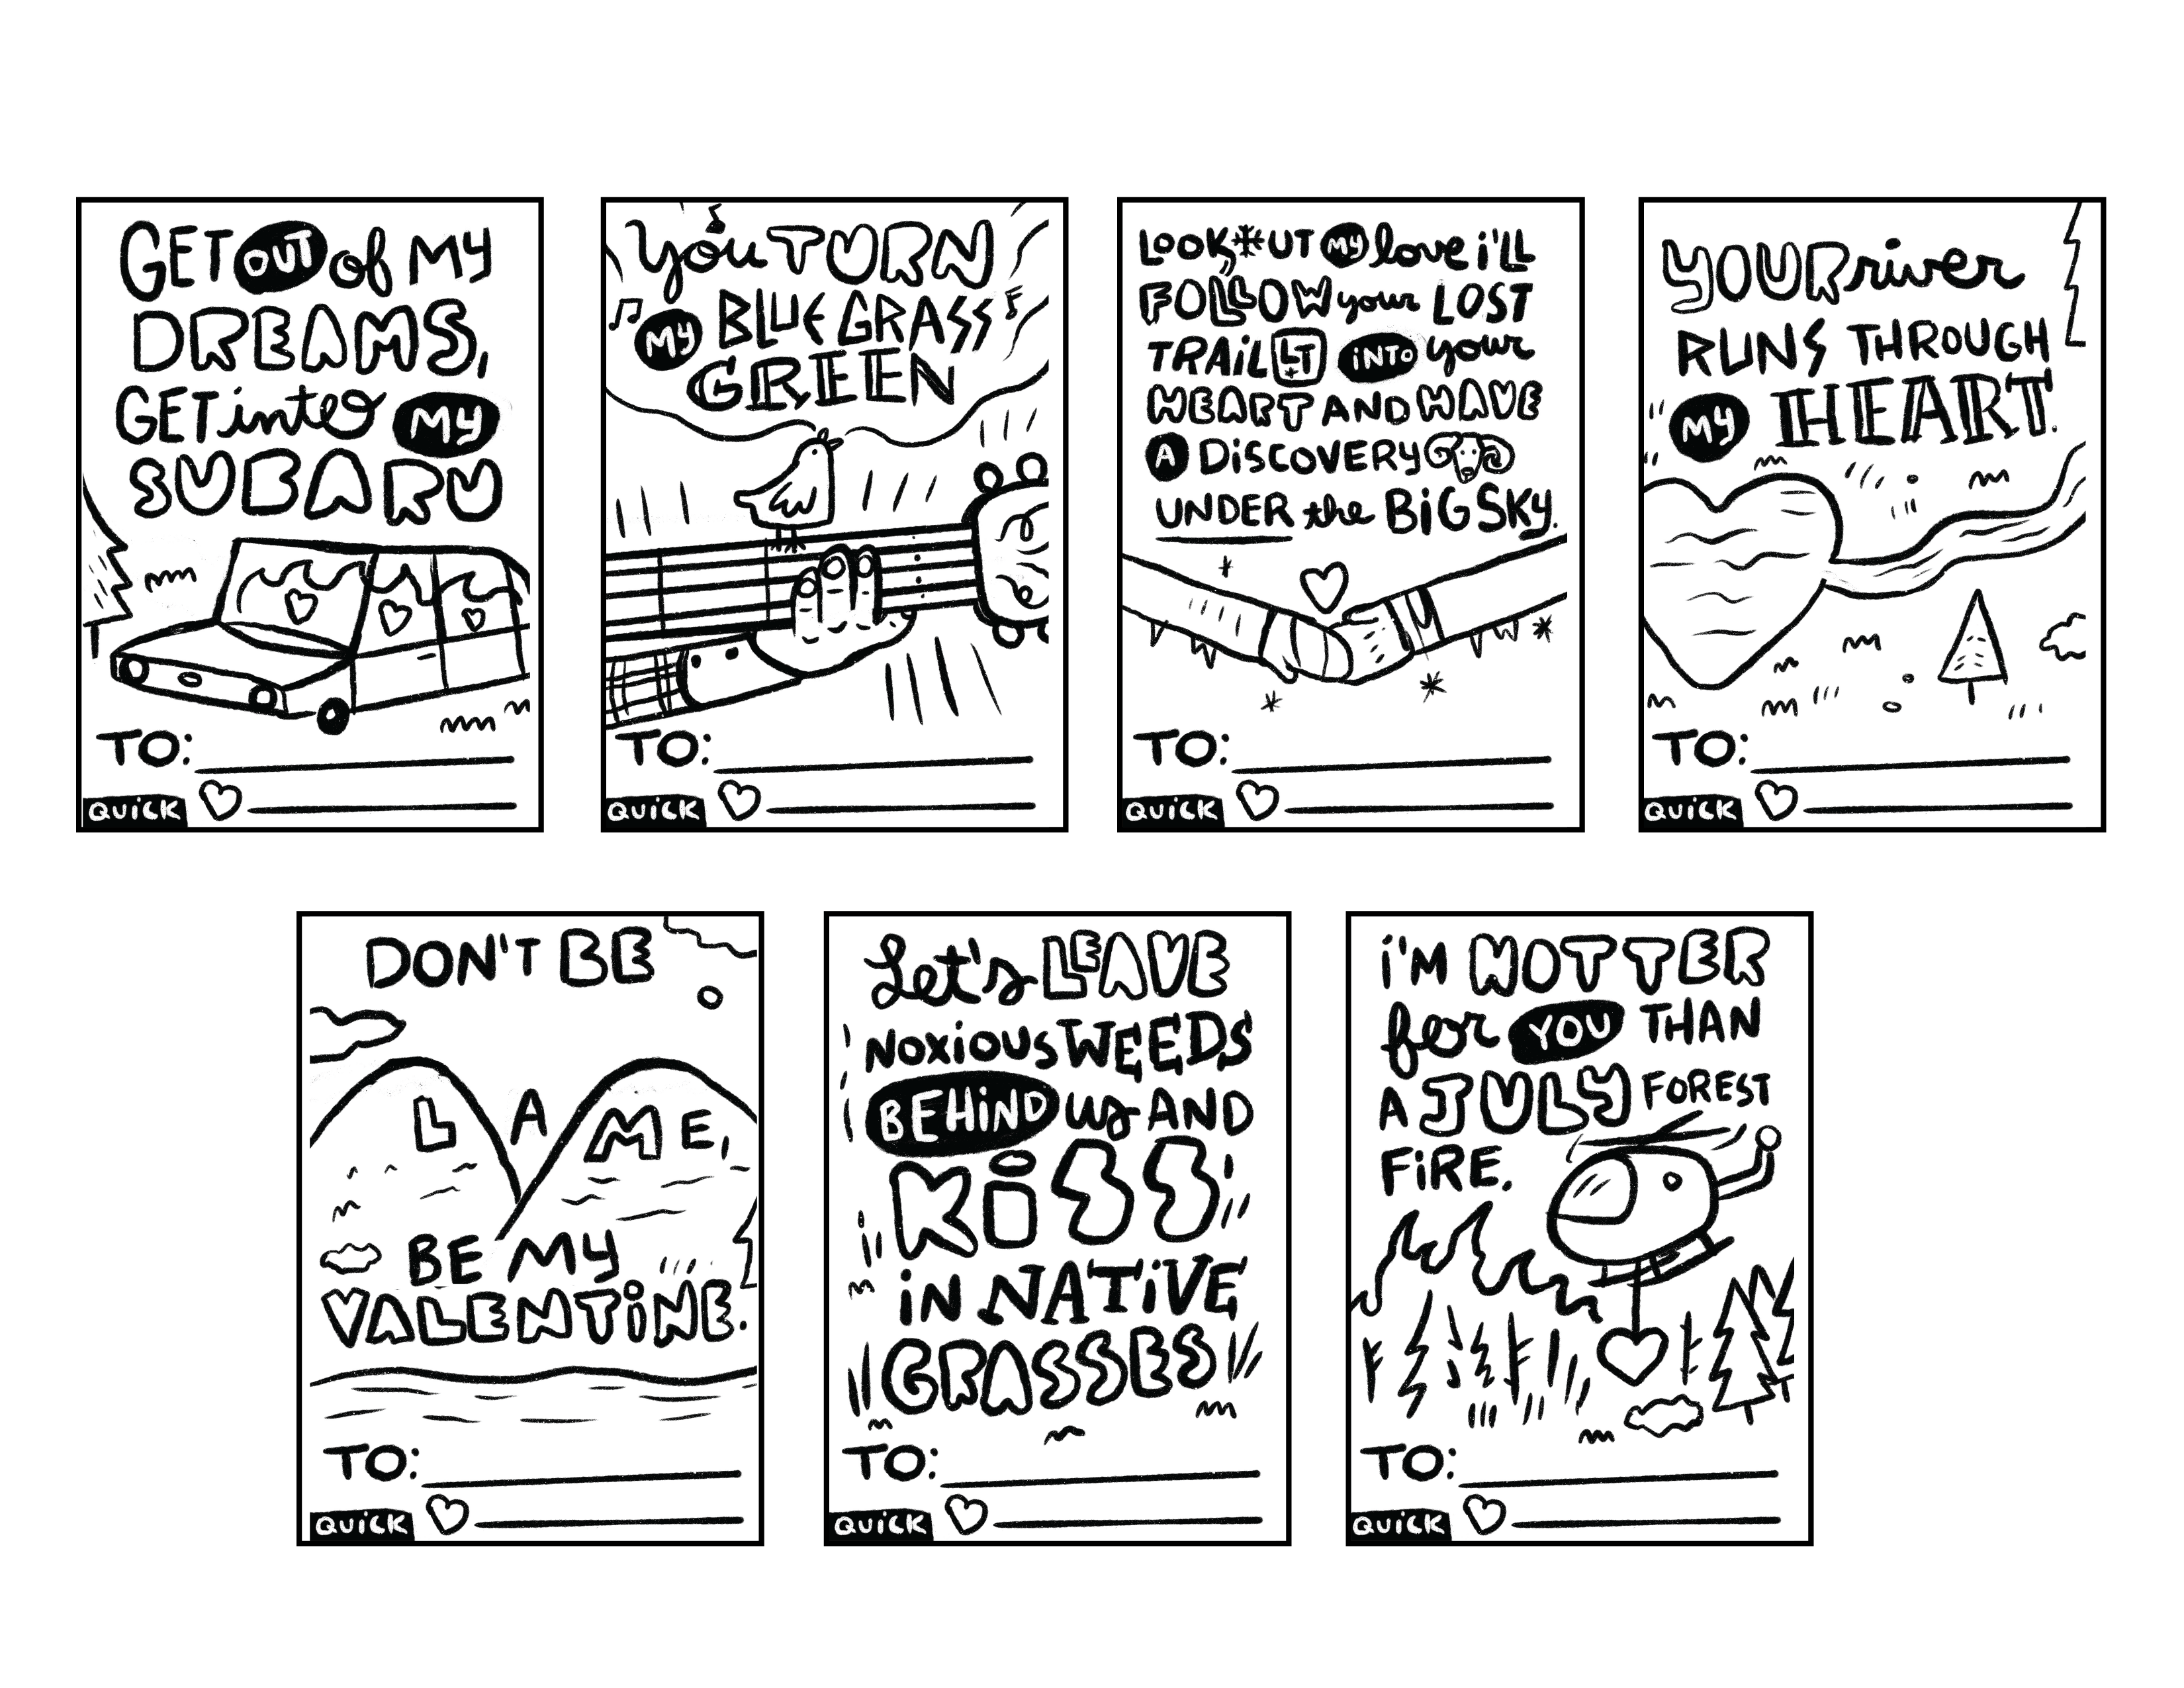 GET OUT of MY
DREAMS,
GET into MY
SUBARU
TO:
QUiCK
you TURN
MY BLUEGRASS
GREEN
TO:
QUiCK
LOOK*UT MY love i'LL
FOLLOW your LOST
TRAiL LT iNTO your
HEART AND HAVE
A DiSCOVERY
UNDER the BiG SKY.
TO:
QUiCK
YOUR river
RUNS THROUGH
MY HEART.
TO:
QUiCK
DON'T BE
LAME,
BE MY
VALENTiNE.
TO:
QUiCK
Let's LEAVE
NOXiOUS WEEDS
BEHiND us AND
KiSS
iN NATiVE
GRASSES
TO:
QUiCK
i'M HOTTER
for YOU THAN
A JULY FOREST
FiRE.
TO:
QUiCK